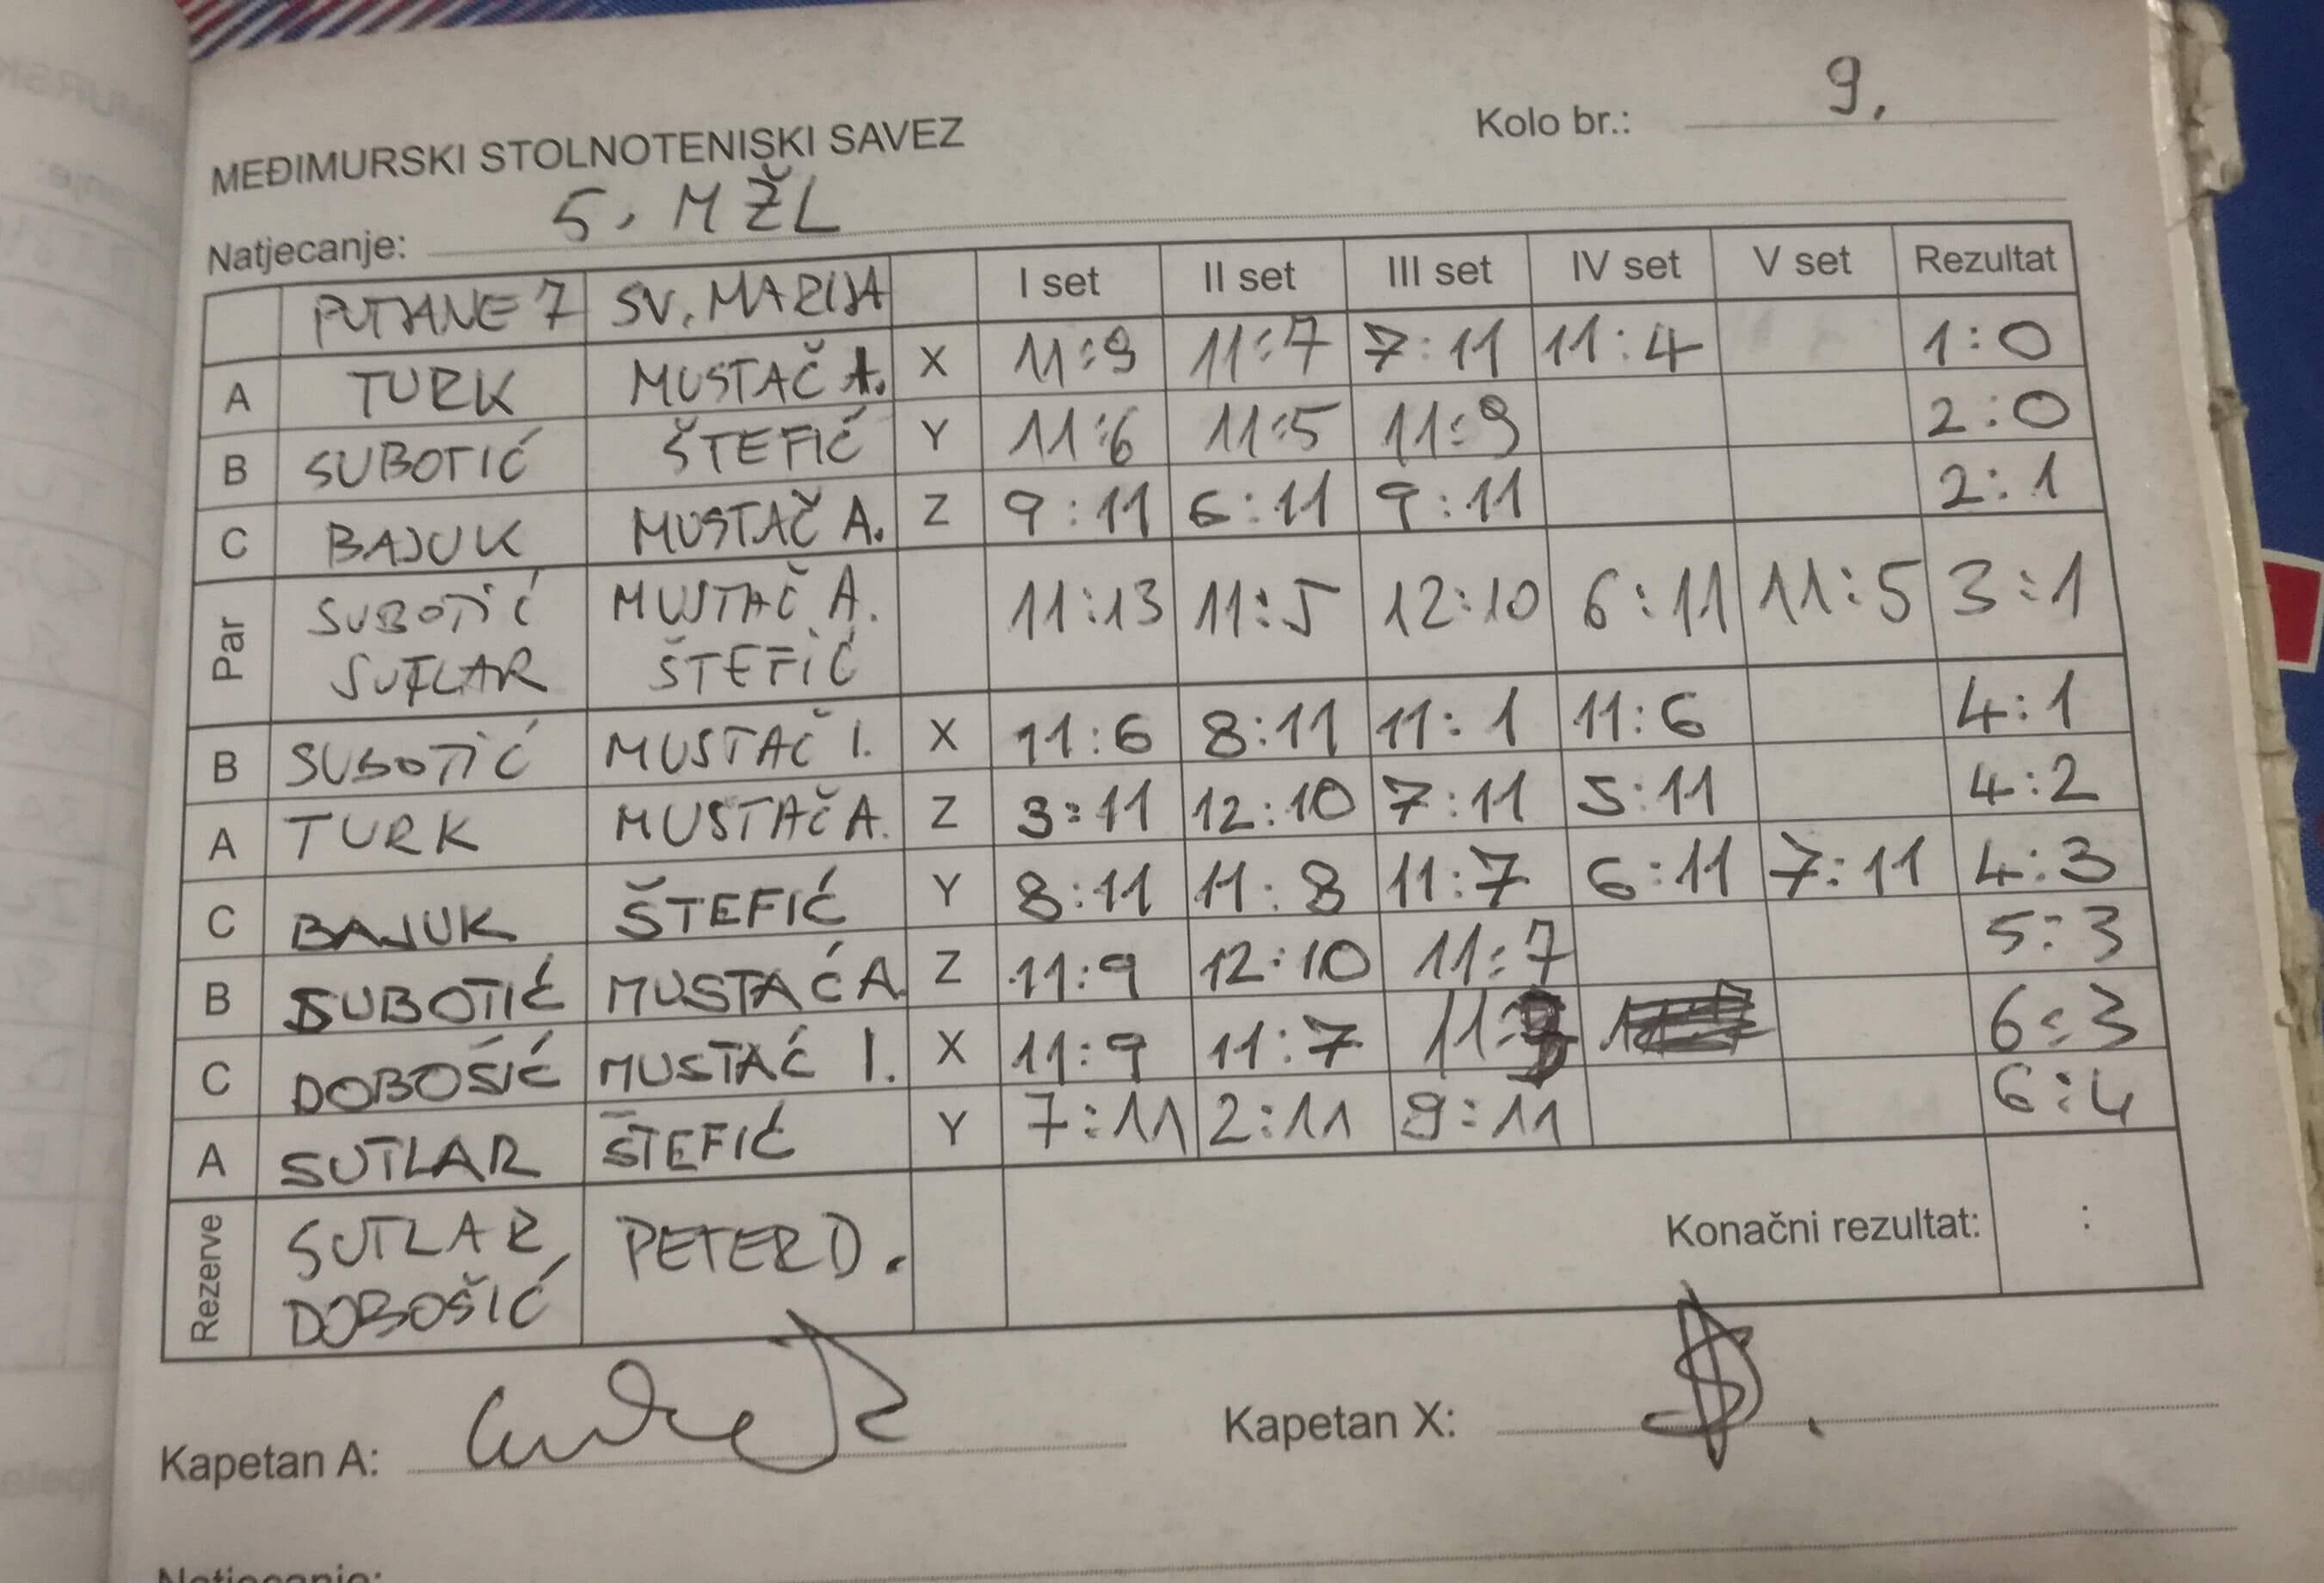 Kolo br.: 9.
MEĐIMURSKI STOLNOTENISKI SAVEZ
Natjecanje: 5. MŽL
PUTJANE 7 SV. MARIJA I set II set III set IV set V set Rezultat
A TURK MUSTAČ A. X 11:9 11:7 7:11 11:4 1:0
B SUBOTIĆ ŠTEFIĆ Y 11:6 11:5 11:9 2:0
C BAJUK MUSTAČ A. Z 9:11 6:11 9:11 2:1
Par SUBOTIĆ MUSTAČ A. 11:13 11:5 12:10 6:11 11:5 3:1
SUTLAR ŠTEFIĆ
B SUBOTIĆ MUSTAČ I. X 11:6 8:11 11:1 11:6 4:1
A TURK MUSTAČ A. Z 3:11 12:10 7:11 5:11 4:2
C BAJUK ŠTEFIĆ Y 8:11 11:8 11:7 6:11 7:11 4:3
B SUBOTIĆ MUSTAĆ A Z 11:9 12:10 11:7 5:3
C DOBOŠIĆ MUSTAĆ I. X 11:9 11:7 6:3
A SUTLAR ŠTEFIĆ Y 7:11 2:11 9:11 6:4
Rezerve SUTLAR, PETER D. Konačni rezultat: :
DOBOŠIĆ
Kapetan A: Kapetan X:
Natjecanje: